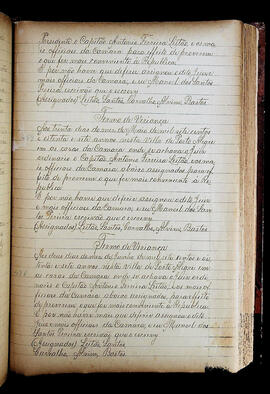 Presidente o Capitão Antonio Ferreira Leitão e os ma
is officiaes da Camara para effeito de proverem
o que for mais conveniente á Republica.
E por não haver que deferir assignou o dito Juiz e
mais officiaes da Camara, e eu Manoel dos Santos
Pereira escrivão que o escrevy
(Assignados) Leitão, Santos, Carvalho, Alvim, Bastos
Termo de Vereança
Aos trinta dias do mez de Maio de mil sete centos
e oitenta e sete annos nesta Villa de Porto Alegre
em as casas da Camara onde se achava o Juiz
ordinario o Capitão Antonio Ferreira Leitão e os ma
is officiaes da Camara, abaixo assignados para ef
feito de proverem o que for mais conveniente á Re
publica
E por não haver que deferir assignou o dito Juiz
e mais officiaes da Camara, e eu Manoel dos San
tos Pereira escrivão que o escrevy
(Assignados) Leitão, Santos, Carvalho, Alvim, Bastos
Termo de Vereança
Aos dias do mez de Junho de mil sete centos e oi
tenta e sete annos nesta Villa de Porto Alegre em
as casas da Camara, onde se achava o Juiz orde
o Capitão Antonio Ferreira Leitão, e os mais of
ficiaes da Camara, abaixo assignados, para effeito
de proverem o que for mais conveniente á Republica
E por não haver mais que deferir assignou o dito
Juiz e mais officiaes da Camara, e eu Manoel dos
Santos Pereira escrivão que o escrevy
(Assignados) Leitão, Santos
Carvalho, Alvim, Bastos